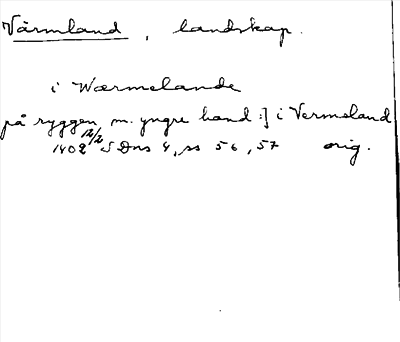 Värmland, landskap.
i Wærmelande
på ryggen m. yngre hand :] i Vermeland
1402 12/2 SDns 4, ss 56, 57 orig.